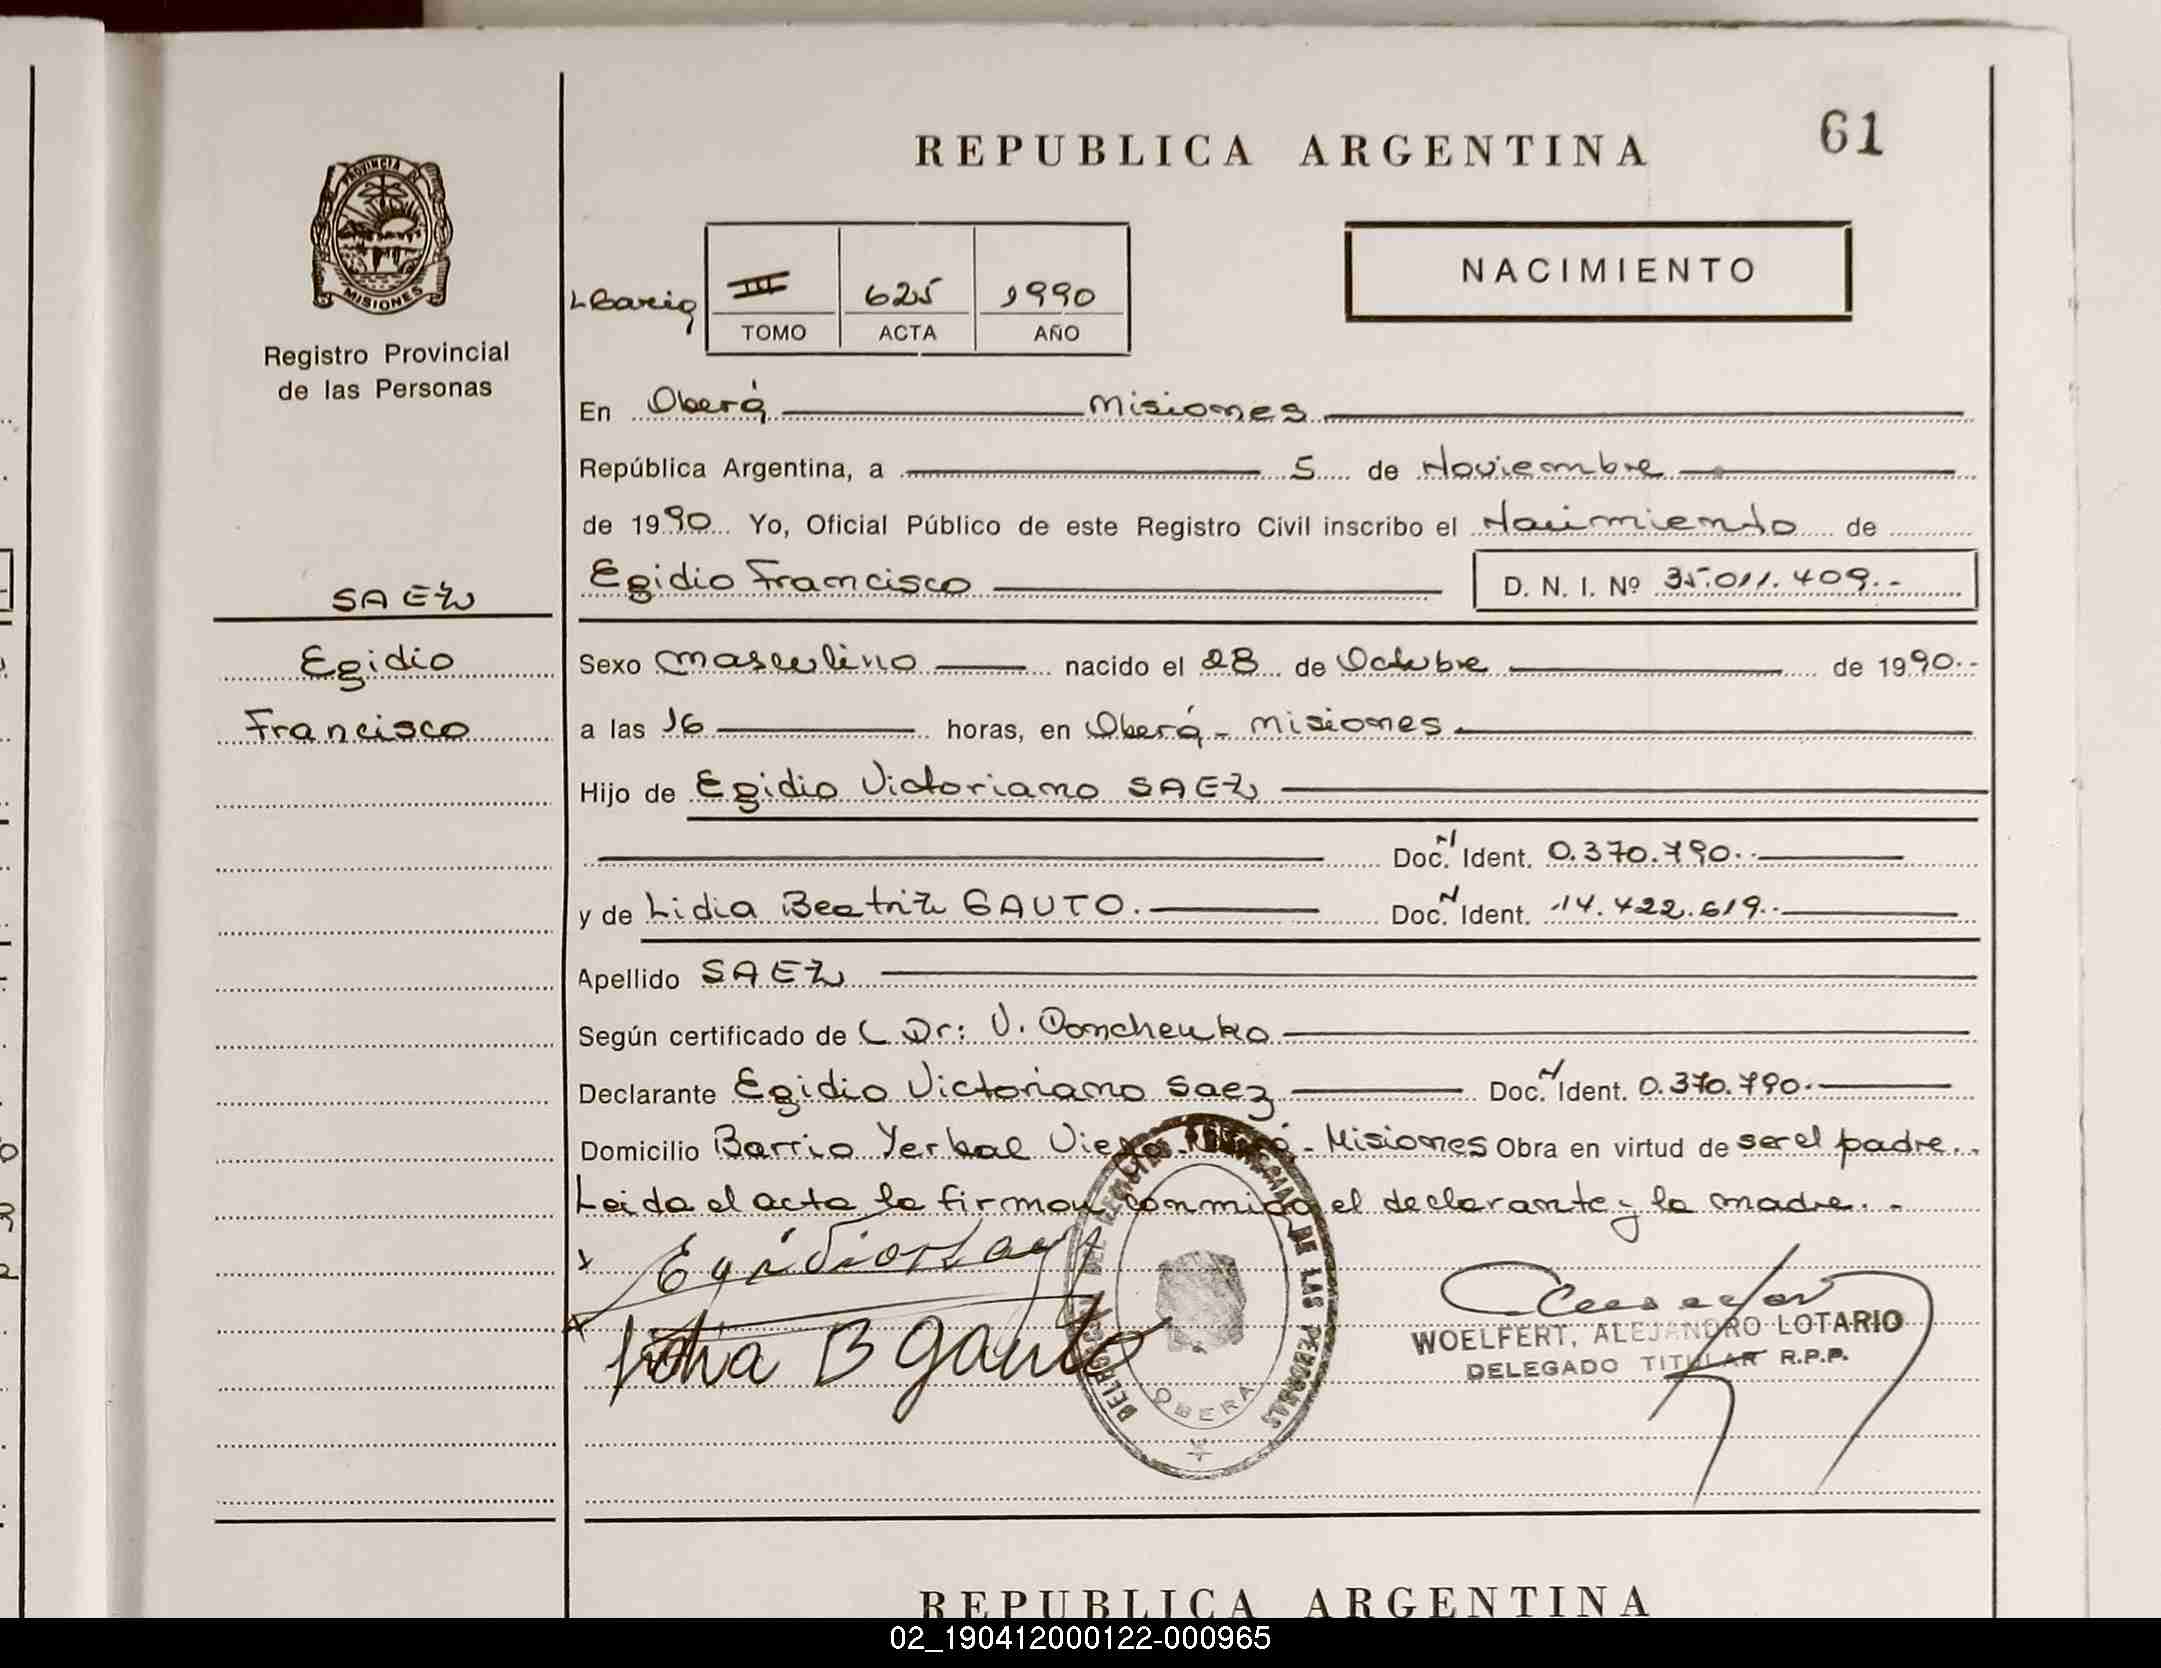 REPUBLICA ARGENTINA
61
PROVINCIA DE
MISIONES
Registro Provincial
de las Personas
III 625 1990
TOMO ACTA AÑO
NACIMIENTO
En Oberá Misiones
República Argentina, a 5 de Noviembre
de 1990 Yo, Oficial Público de este Registro Civil inscribo el Nacimiento de
Egidio Francisco D. N. I. Nº 35.011.409.-
SAEZ
Egidio
Francisco
Sexo masculino nacido el 28 de Octubre de 1990.-
a las 16 horas, en Oberá - misiones
Hijo de Egidio Victoriano SAEZ
Doc. N Ident. 0.370.790.-
y de Lidia Beatriz GAUTO. Doc. N Ident. 14.422.619.-
Apellido SAEZ
Según certificado de Dr: V. Donchenko
Declarante Egidio Victoriano Saez Doc. N Ident. 0.370.790.
Domicilio Barrio Yerbal Viejo - Oberá - Misiones Obra en virtud de ser el padre.-
Leida el acta la firman conmigo el declarante y la madre. -
x Egidio Saez
x Lidia B Gauto
DELEGACION DEL REGISTRO PROVINCIAL DE LAS PERSONAS
OBERA
WOELFERT, ALEJANDRO LOTARIO
DELEGADO TITULAR R.P.P.
REPUBLICA ARGENTINA
02_190412000122-000965